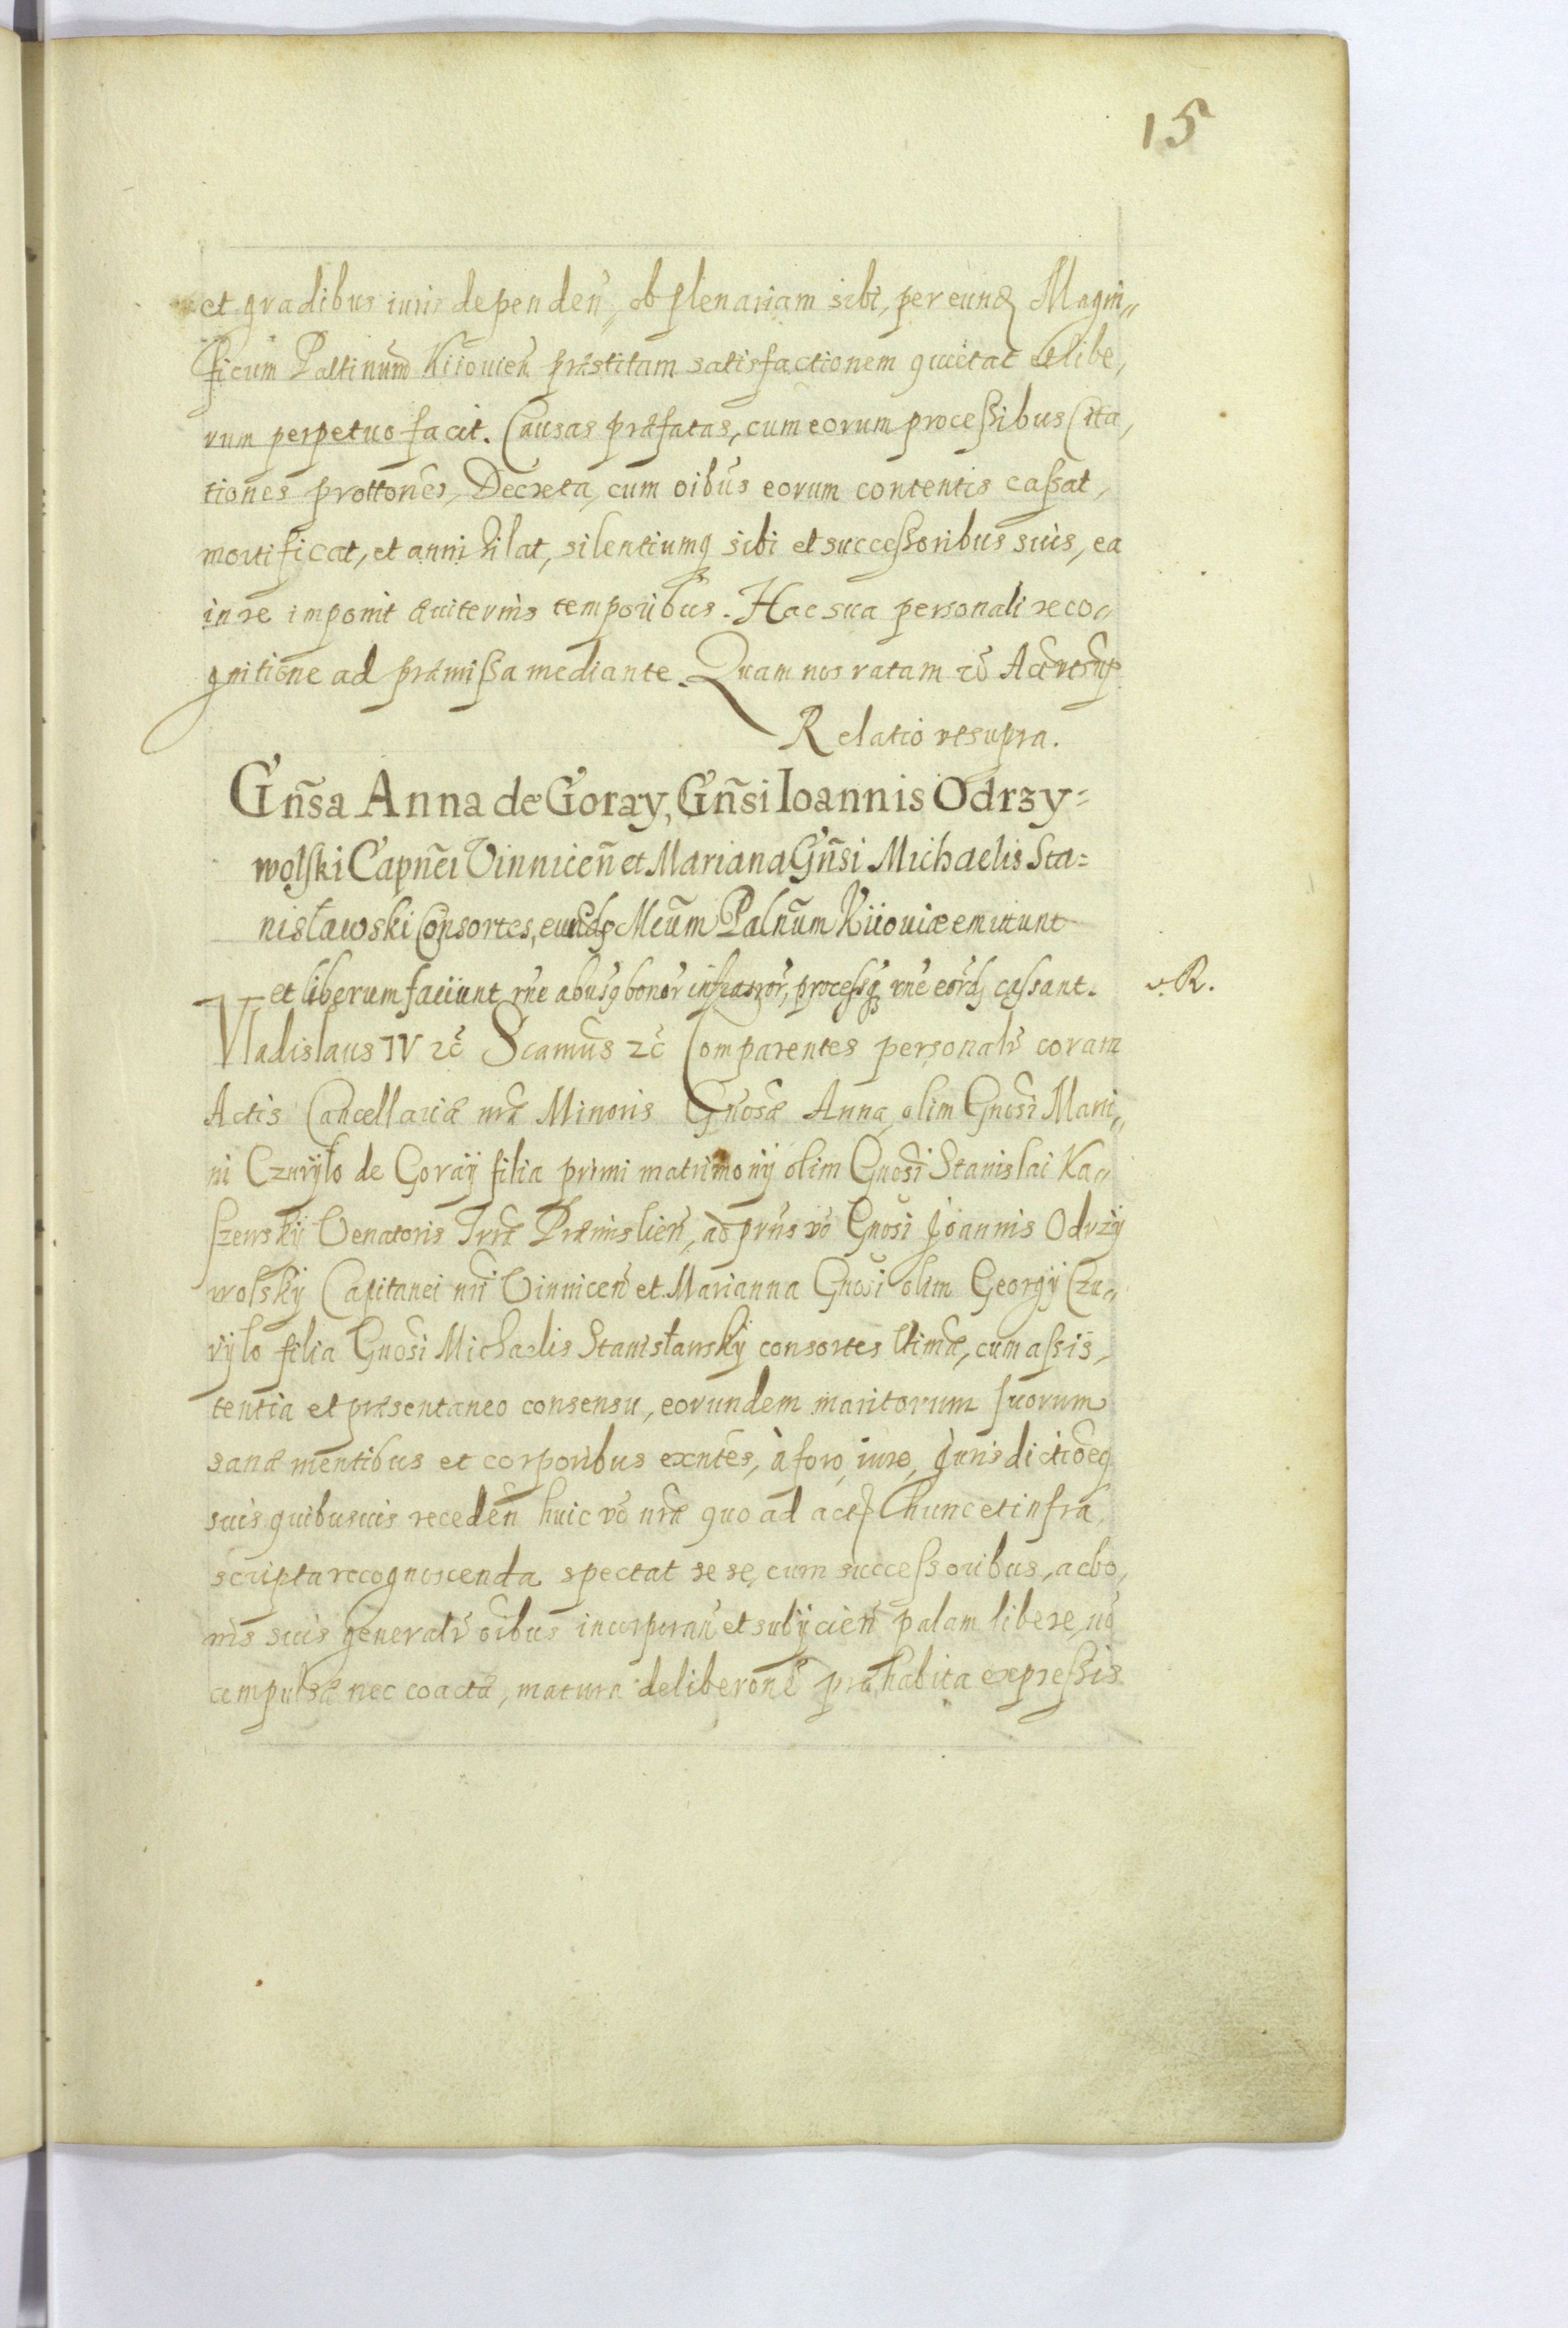 15
et gradibus iuris dependeñ, ob plenariam sibi, per eund Magni„
ficum Paltinum Kiiovien præstitam satisfactionem quietat et libe,
rum perpetuo facit. Causas præfatas, cum eorum proceßibus Cita,
tiones prottones, Decreta, cum oibus eorum contentis caßat,
mortificat, et annihilat, silentiumq sibi et succeßoribus suis, ea
in re imponit æviternis temporibus. Hac sua personali reco„
gnitione ad præmißa mediante. Quam nos ratam
Relatio vt supra.
Gñsa Anna de Goray, Gñsi Ioannis Odrzy=
wolski Capñei Vinniceñ et Mariana Gñsi Michaelis Sta=
nisławski Consortes, eundē Mcūm Palnūm Kiioviæ emittunt
et liberum faciunt rñe abusq bonor̃ infrator̃, processq rñe eord caßant.
v. R.
Vladislaus IV zc̃ Scamus zc̃ Comparentes personalr̃ coram
Actis Cancellariæ nræ Minoris Gnosæ Anna, olim Gnosi Marti„
ni Czuryło de Goraÿ filia primi matrimonÿ olim Gnosi Stanislai Ka„
szewskÿ Venatoris Trræ Præmislień, ad prñs vo Gnosi Joannis Odrzÿ
wolskÿ Capitanei nri Vinniceñ et Marianna Gnosi olim Georgÿ Czu„
ryło filia Gnosi Michaelis Stanisławskÿ consortes ltimæ, cum aßis,
tentia et præsentaneo consensu, eorundem maritorum suorum
sanæ mentibus et corporibus exntes, à foro, iure, Jurisdictioēq
suis quibusuis recedeñ huic vo nræ quo ad act hunc et infra
scripta recognoscenda spectat se se, cum succeßoribus, ac bo,
nis suis generalr̃ oibus incorporañ et subÿcieñ palam libere, no
compulsæ nec coactæ, matura deliberone præhabita expreßis